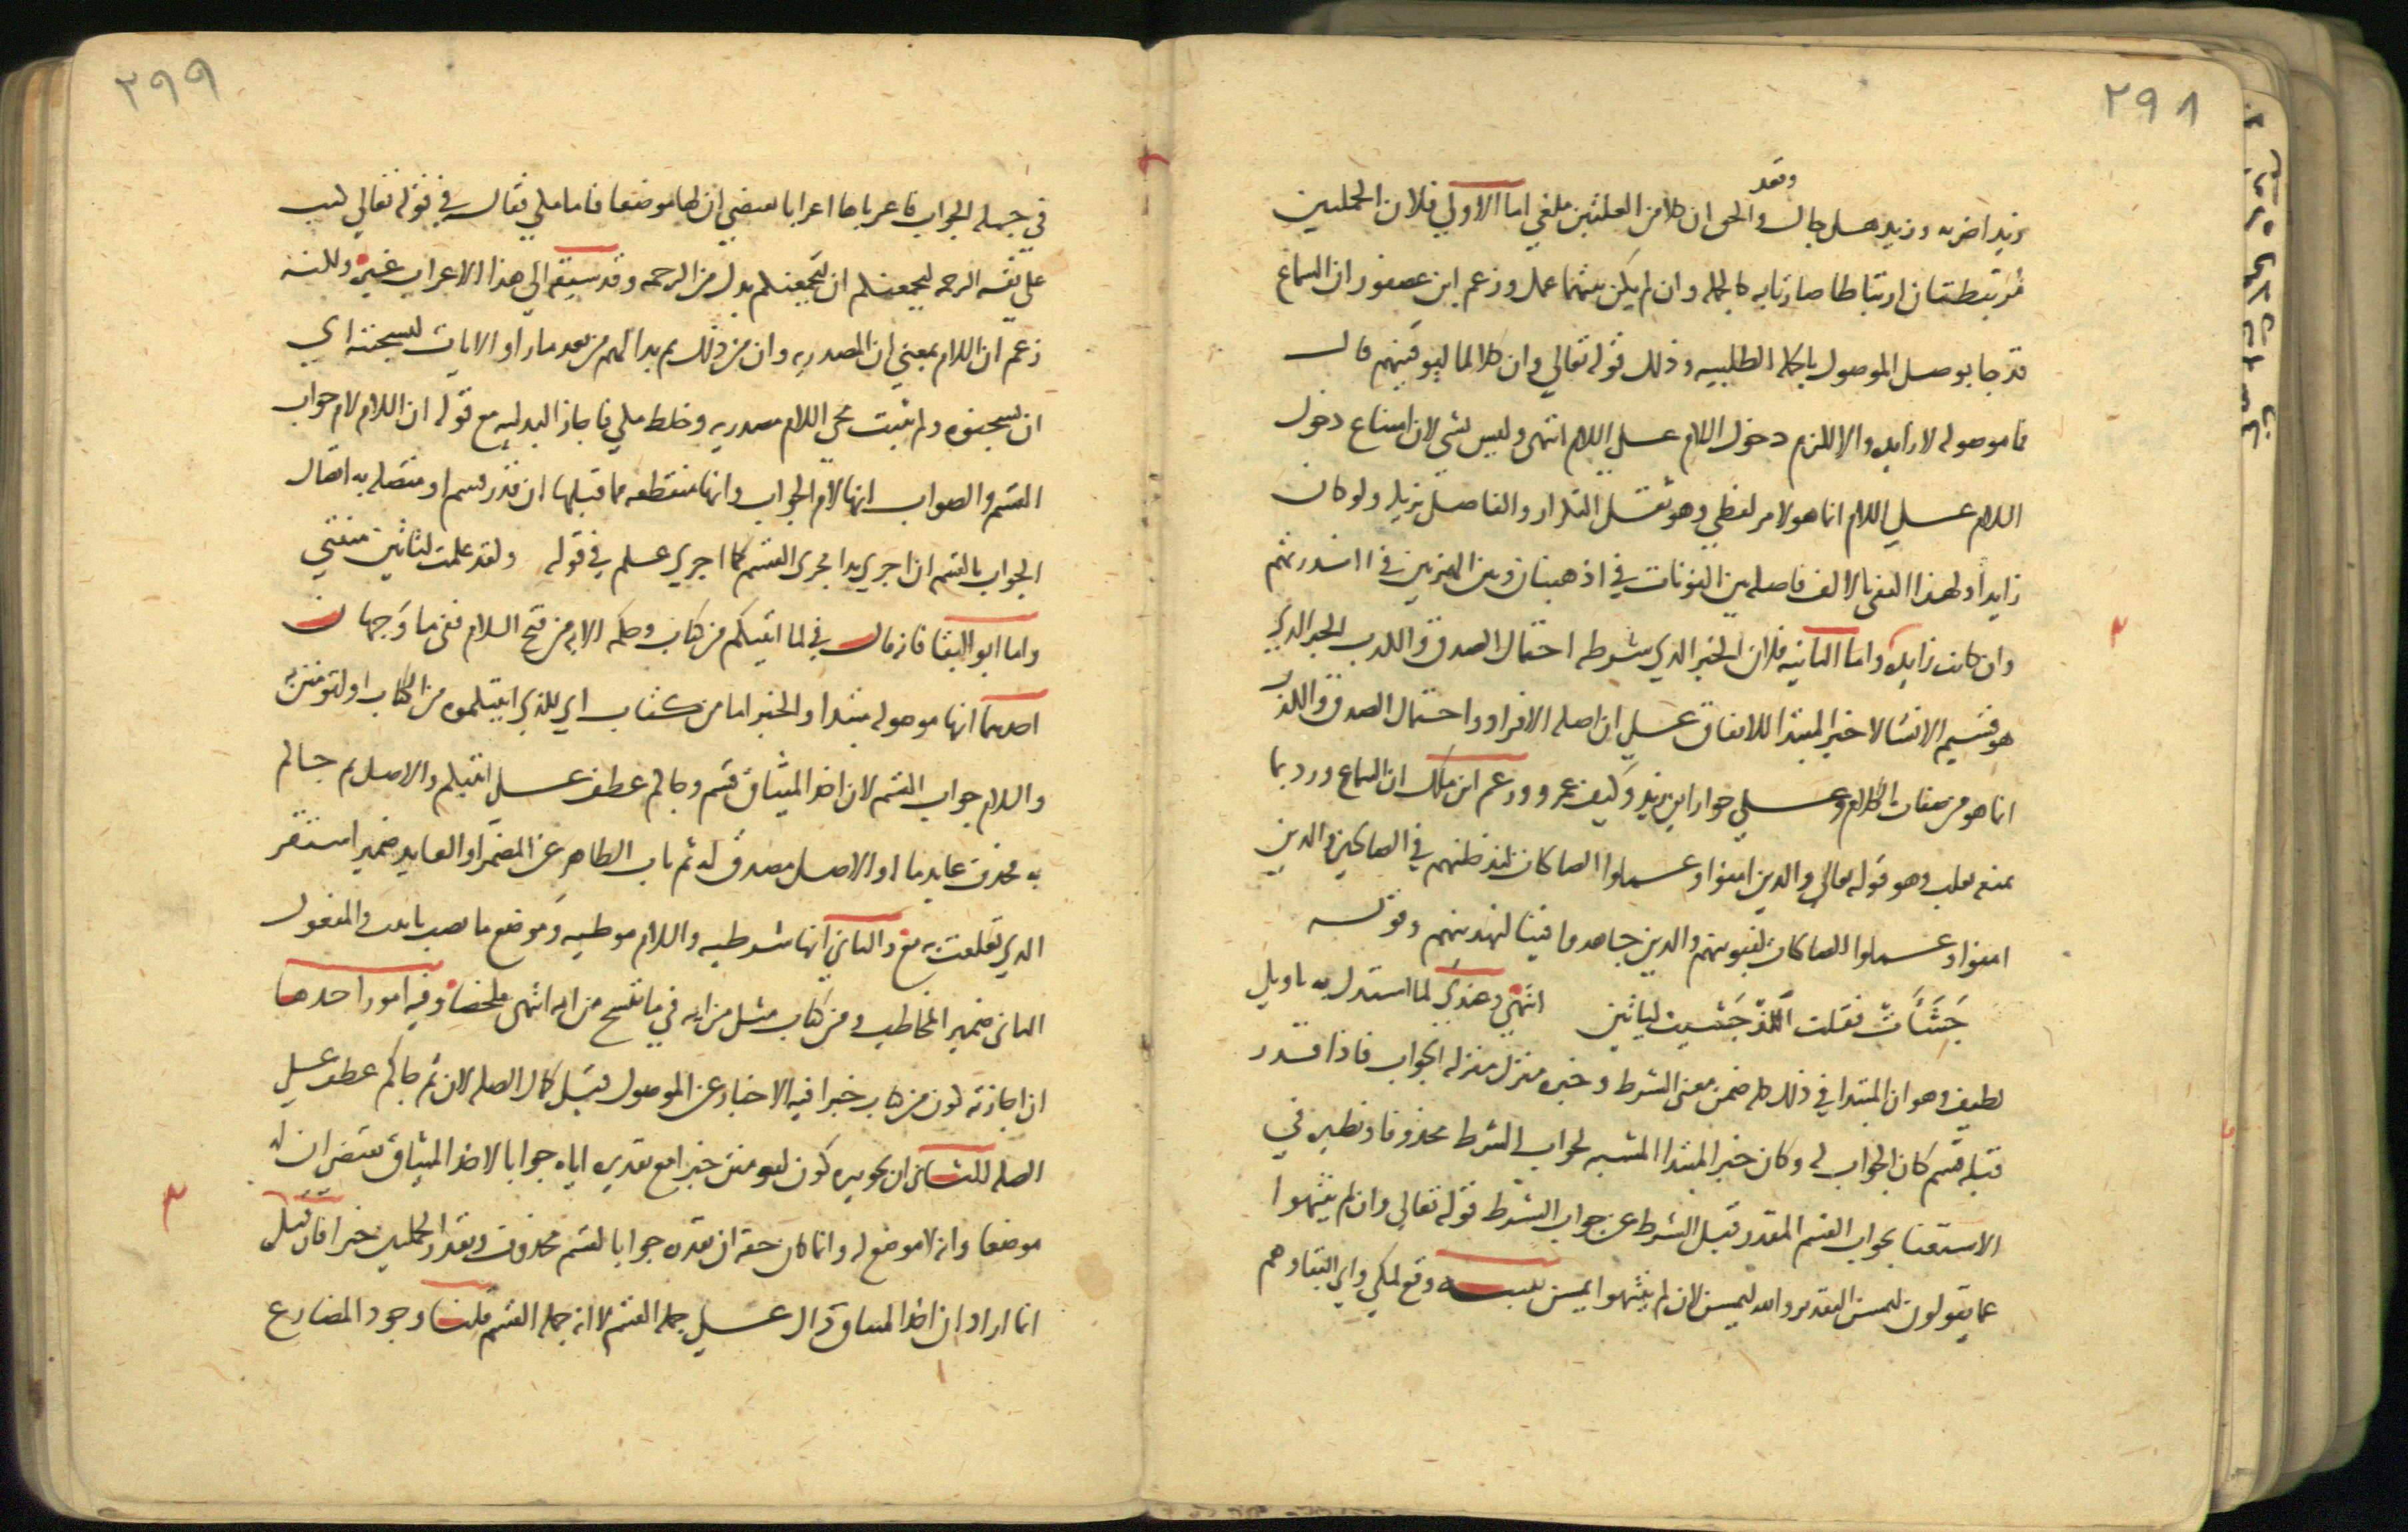 ٢٩٨
وبعد
زيد اضربه وزيد هل جاك والحق ان كلا من العلتين ملغي اما الاولي فلان الجملتين
مرتبطتان ارتباطا صارتا به كالجملة وان لم يكن بينهما عمل وزعم ابن عصفور ان السماع
قد جا بوصل الموصول بالجملة الطلبيه وذلك قوله تعالي وان كلا لما ليوفينهم قال
فما موصوله لا زايده والا لزم دخول اللام علي اللام انتهي وليس بشي لان امتناع دخول
اللام علي اللام انما هو لامر لفظي وهو ثقل التكرار والفاصل يزيله ولو كان
زايدا ولهذا اكتفي بالالف فاصله بين النونات في اذهبنان وبين الهمزتين في ااانذرتهم
وان كانت زايده واما الثانيه فلان الخبر الذي شرطه احتمال الصدق والكذب الخبر الذي
هو قسيم الانشا لا خبر المبتدا للاتفاق علي ان اصله الافراد واحتمال الصدق والكذب
انما هو من صفات الكلام وعلي جواز اين زيد وكيف عمرو وزعم ابن ملك ان السماع ورد بما
منعه ثعلب وهو قوله تعالي والذين امنوا وعملوا الصالحات لندخلنهم في الصالحين والذين
امنوا وعملوا الصالحات لنبوينهم والذين جاهدوا فينا لنهدينهم وقوله
جَشَأَتْ فقلت اللَّذْ جَشيت لياتين انتهي وعندي لما استدل به تاويل
لطيف وهو ان المبتدا في ذلك كله ضمن معني الشرط وخبره منزل منزله الجواب فاذا قدر
قبله قسم كان الجواب له وكان خبر المبتدا المشبه لجواب الشرط محذوفا ونظيره في
الاستغنا بجواب القسم المقدر قبل الشرط عن جواب الشرط قوله تعالي وان لم ينتهوا
عما يقولون ليمسن التقدير والله ليمسن لان لم ينتهوا ليمسن تنبيه وقع لمكي وابي البقا وهم
٢٩٩
في جمله الجواب فاعرباها اعرابا يقتضي ان لها موضعا فاما مكي فقال في قوله تعالي كتب
علي نفسه الرحمه ليجمعنكم ان ليجمعنكم بدل من الرحمه وقد سبقه الي هذا الاعراب غيره ولكنه
زعم ان اللام بمعني ان المصدريه وان من ذلك ثم بدا لهم من بعد ما راوا الايات ليسجننه اي
ان يسجنوه ولم يثبت مجي اللام مصدريه وخلط مكي فاجاز البدليه مع قوله ان اللام لام جواب
القسم والصواب انها لام الجواب وانها منقطعه مما قبلها ان قدر قسم او متصله به اتصال
الجواب بالقسم ان اجري بدا مجري القسم كما اجري علم في قوله ولقد علمت لتاتين منيتي
واما ابو البقا فانه قال في لما اتيتكم من كتاب وحكمه الايه من فتح اللام ففي ما وجهان
احدهما انها موصوله مبتدا والخبر اما من كتاب اي للذي اتيتكموه من الكتاب او لتومنن به
واللام جواب القسم لان اخذ الميثاق قسم وجاكم عطف علي اتيتكم والاصل ثم جاكم
به فحذف عايد ما او الاصل مصدق له ثم ناب الظاهر عن المضمر او العايد ضمير استقر
الذي تعلقت به مع والثاني انها شرطيه واللام موطيه وموضع ما نصب باتيت والمفعول
الثاني ضمير المخاطب ومن كتاب مثل من ايه في ما ننسخ من ايه انتهي ملخصا وفيه امور احدها
ان اجازته كون من كتاب خبرا فيه الاخبار عن الموصول قبل كمال الصله لان ثم جاكم عطف علي
الصله الثاني ان تجويزه كون لتومنن خبرا مع تقديره اياه جوابا لاخذ الميثاق يقتضي ان له
موضعا وانه لا موضع له وانما كان حقه ان يقدره جوابا لقسم محذوف ويقدر الجملتين خبرا فان قيل
انما اراد ان اخذ الميثاق دال علي جمله القسم لا انه جمله القسم قلنا وجود المضارع